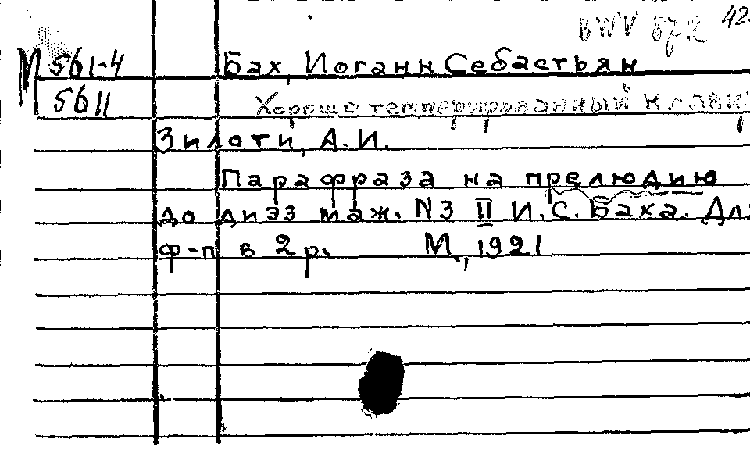 BWV 872 42
М 561-4 Бах, Иоганн Себастьян
5611 Хорошо темперированный клавир
Зилоти, А.И.
Парафраза на прелюдию
до диэз маж. N3 II И.С. Баха. Для
ф-п в 2 р. М., 1921